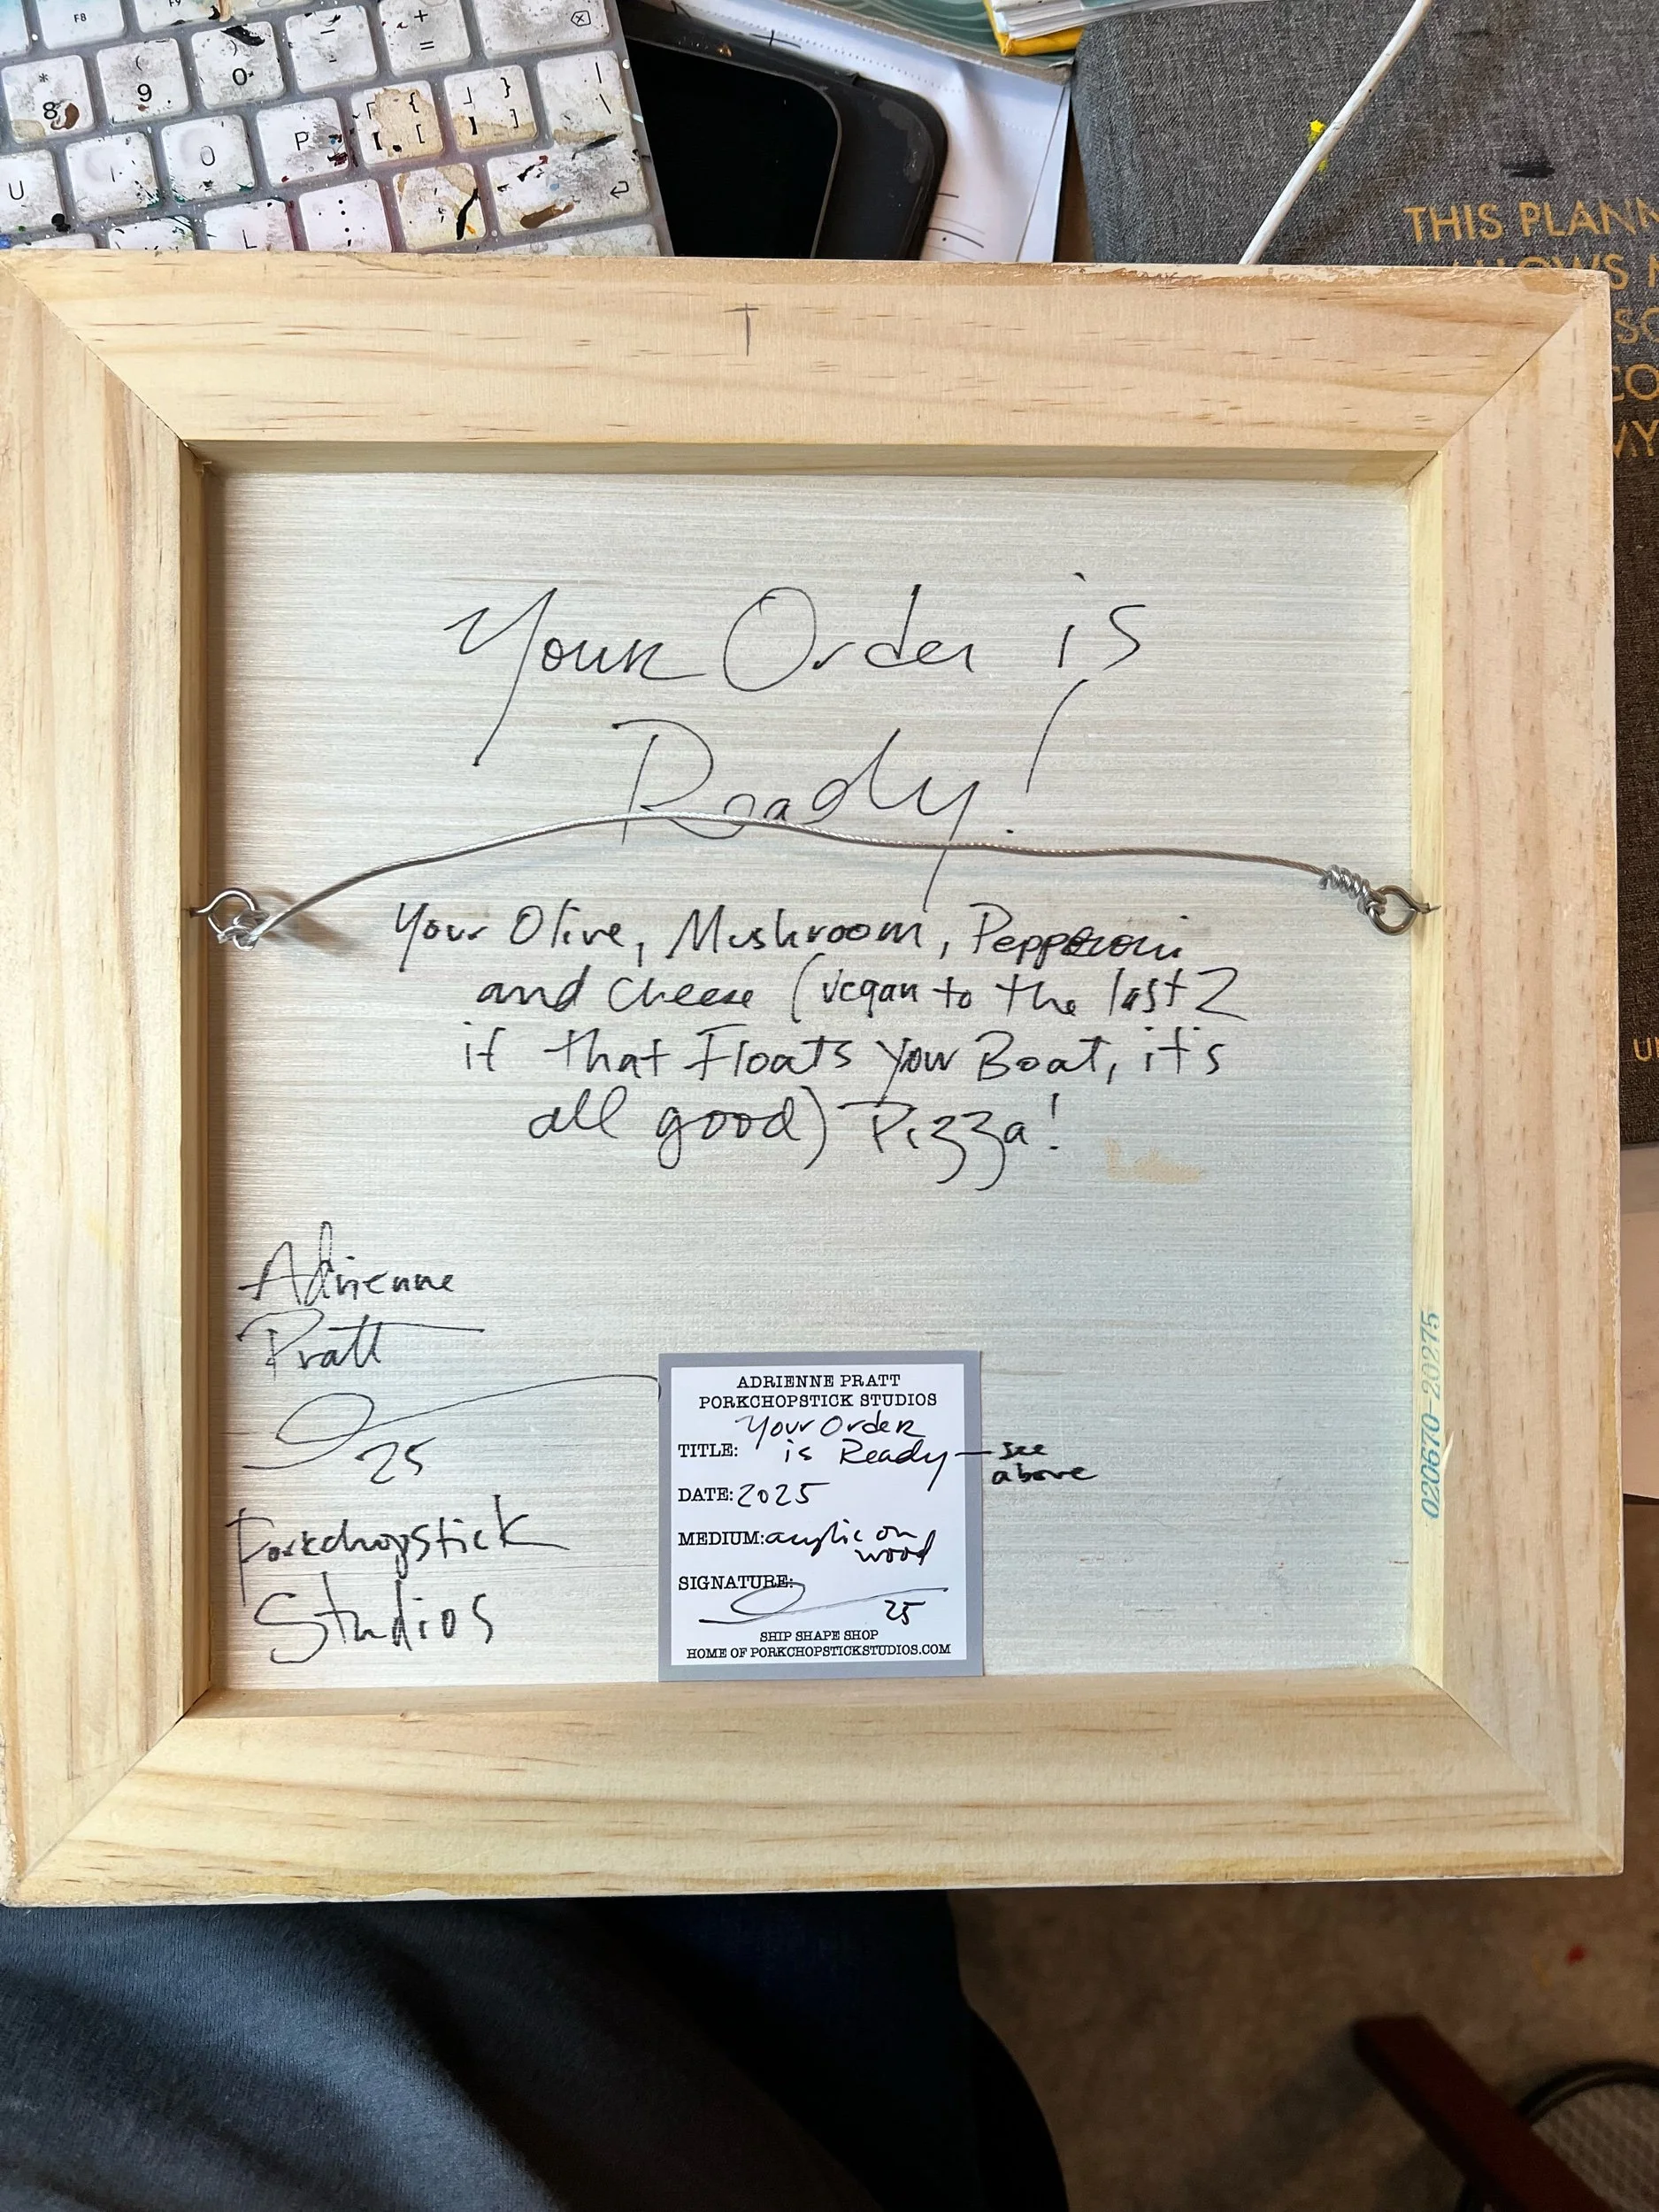 F8
F9
+
=
*
8
(
9
)
0
-
{
[
}
]
U
I
O
P
L
THIS PLANN
SO
CO
T
Your Order is
Ready!
Your Olive, Mushroom, Pepperoni
and Cheese (vegan to the last 2
if that Floats Your Boat, it's
all good) Pizza!
Adrienne
Pratt
25
Porkchopstick
Studios
ADRIENNE PRATT
PORKCHOPSTICK STUDIOS
Your Order
TITLE: is Ready — see
above
DATE: 2025
MEDIUM: acrylic on
wood
SIGNATURE:
25
SHIP SHAPE SHOP
HOME OF PORKCHOPSTICKSTUDIOS.COM
020670-20275